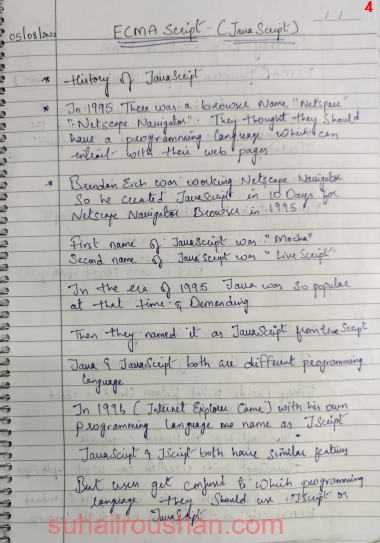 4
05/08/2022
ECMA Script - (JavaScript)
* History of JavaScript
* In 1995 There was a browser Name "Netspace"
"Netscape Navigator". They thought they should
have a programming language which can
with their web pages
* Brendan Eich was working Netscape Navigator
So he created JavaScript in 10 Days for
Netscape Navigator Browser in 1995
First name of JavaScript was "Mocha"
Second name of JavaScript was "LiveScript"
In the era of 1995 Java was so popular
at that time & Demanding
Then they named it as JavaScript from live Script
Java & JavaScript both are different programming
language
In 1996 (Internet Explorer Came) with his own
programming language name as JScript
JavaScript & JScript both have similar features
But users get confused to which programming
language they should use JScript or
JavaScript.
suhailroushan.com